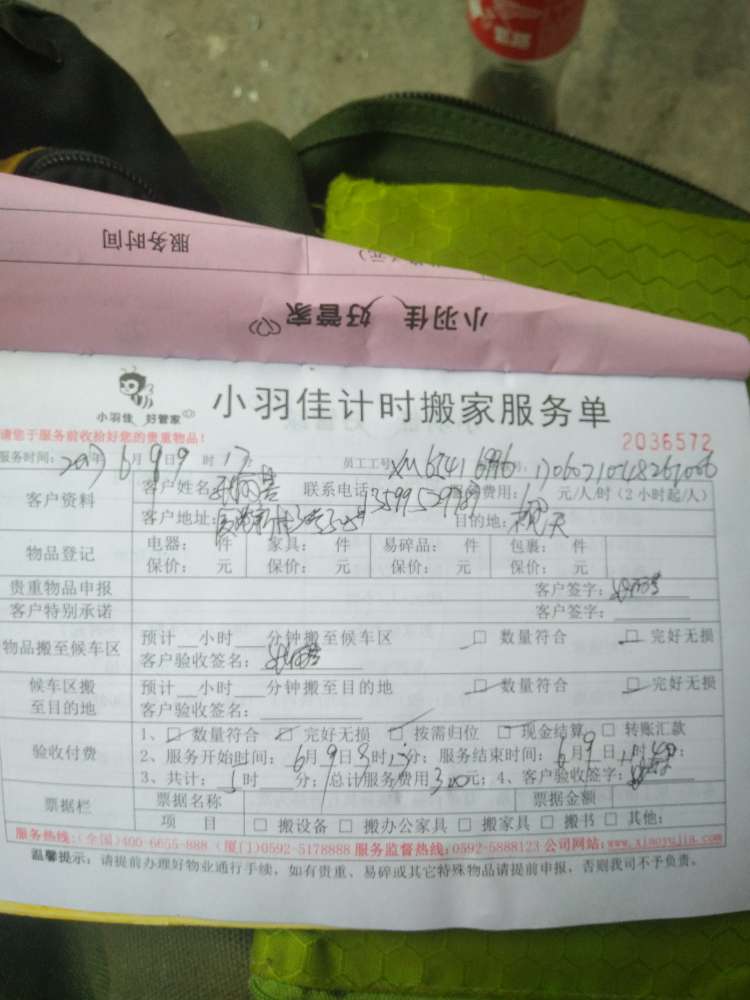 服务时间
小羽佳 好管家
小羽佳 好管家
小羽佳计时搬家服务单
请您于服务前收拾好您的贵重物品！
2036572
服务时间：2017年6月9日9时17 员工工号
客户资料
客户姓名 联系电话 费用： 元/人/时（2小时起/人）
客户地址： 目的地：
物品登记
电器： 件 家具： 件 易碎品： 件 包裹： 件
保价： 元 保价： 元 保价： 元 保价： 元
贵重物品申报 客户签字：
客户特别承诺 客户签字：
物品搬至候车区
预计__小时__分钟搬至候车区 □ 数量符合 □ 完好无损
客户验收签名：
候车区搬至目的地
预计__小时__分钟搬至目的地 □ 数量符合 □ 完好无损
客户验收签名：
验收付费
1、□ 数量符合 □ 完好无损 □ 按需归位 □ 现金结算 □ 转账汇款
2、服务开始时间：6月9日 时 分；服务结束时间：6月9日 时
3、共计： 时 分；总计服务费用300元；4、客户验收签字：
票据栏
票据名称 票据金额
项 目 □ 搬设备 □ 搬办公家具 □ 搬家具 □ 搬书 □ 其他：
服务热线：（全国）400-6655-888（厦门）0592-5178888 服务监督热线：0592-5888123 公司网站：www.xiaoyujia.com
温馨提示：请提前办理好物业通行手续，如有贵重、易碎或其它特殊物品请提前申报，否则我司不予负责。